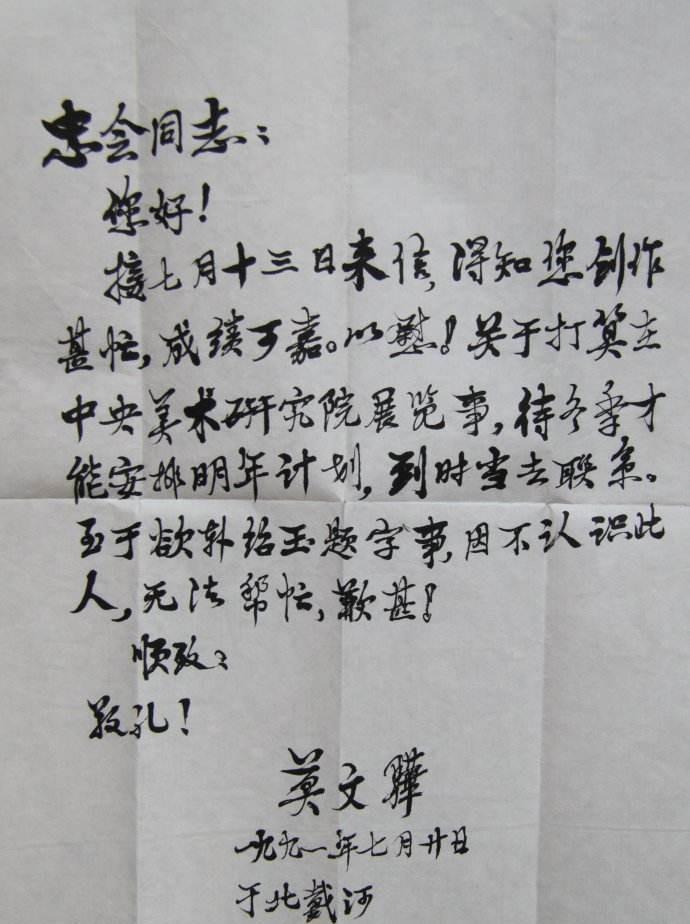 忠会同志：
您好！
接七月十三日来信，得知您创作
甚忙，成绩可嘉。以慰！关于打算在
中央美术研究院展览事，待冬季才
能安排明年计划，到时当去联系。
至于欲朴给玉题字事，因不认识此
人，无法帮忙，歉甚！
顺致：
敬礼！
莫文骅
一九九一年七月廿日
于北戴河